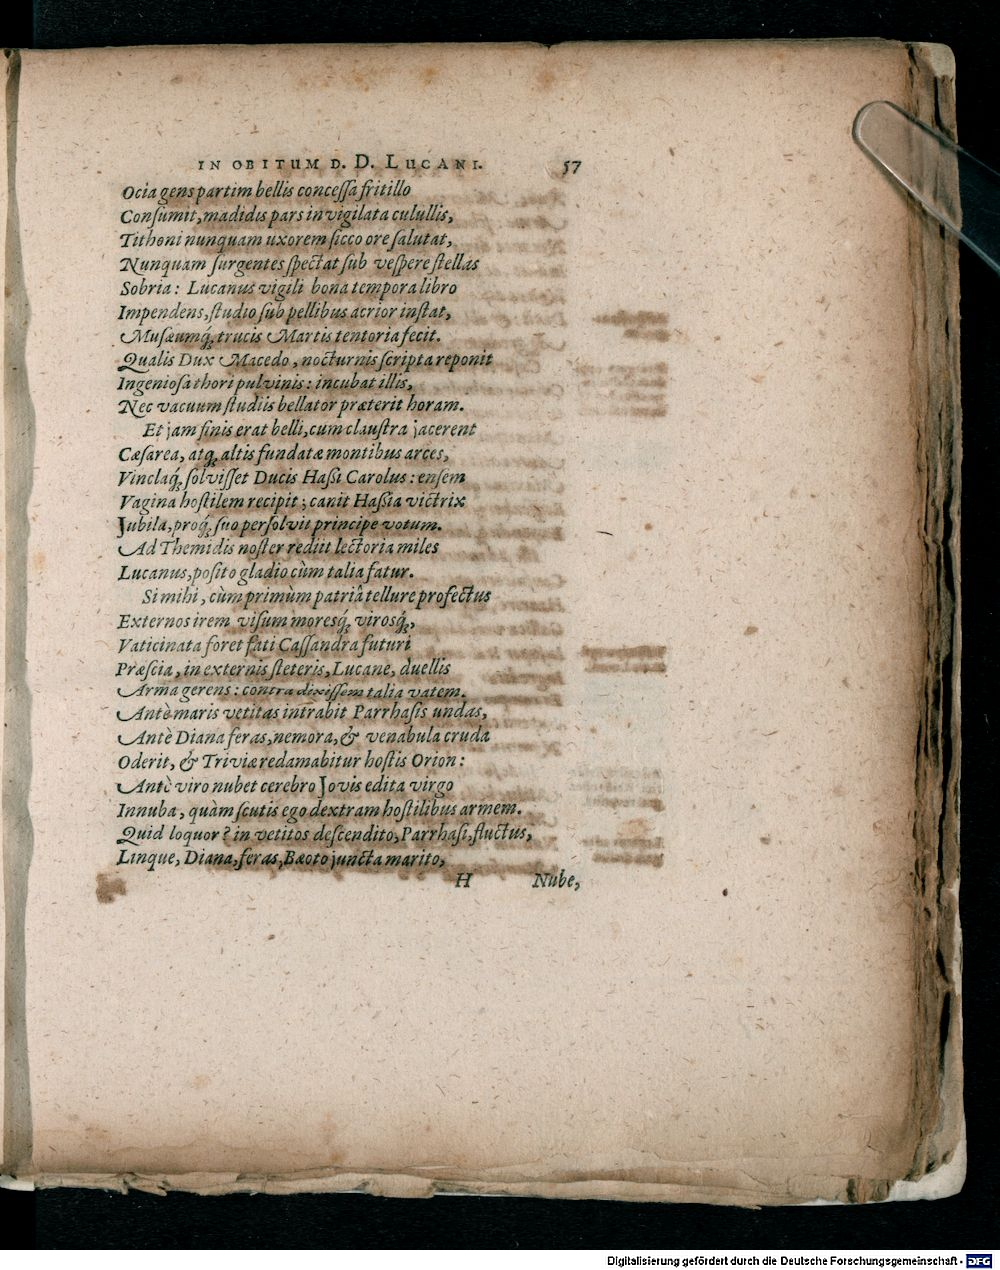 IN OBITUM D. D. LUCANI. 57
Ocia gens partim bellis concessa fritillo
Consumit, madidis pars invigilata culullis,
Tithoni nunquam uxorem sicco ore salutat,
Nunquam surgentes spectat sub vespere stellas
Sobria: Lucanus vigili bona tempora libro
Impendens, studio sub pellibus acrior instat,
Musæumq́; trucis Martis tentoria fecit.
Qualis Dux Macedo, nocturnis scripta reponit
Ingeniosa thori pulvinis: incubat illis,
Nec vacuum studiis bellator præterit horam.
Et jam finis erat belli, cum claustra jacerent
Cæsarea, atq; altis fundatæ montibus arces,
Vinclaq́; solvisset Ducis Hassi Carolus: ensem
Vagina hostilem recipit; canit Hassia victrix
Jubila, proq́; suo persolvit principe votum.
Ad Themidis noster rediit lectoria miles
Lucanus, posito gladio cùm talia fatur.
Si mihi, cùm primùm patriâ tellure profectus
Externos irem visum moresq́; virosq́;,
Vaticinata foret fati Cassandra futuri
Præscia, in externis steteris, Lucane, duellis
Arma gerens: contra dixissem talia vatem.
Antè maris vetitas intrabit Parrhasis undas,
Antè Diana feras, nemora, & venabula cruda
Oderit, & Triviæ redamabitur hostis Orion:
Antè viro nubet cerebro Jovis edita virgo
Innuba, quàm scutis ego dextram hostilibus armem.
Quid loquor? in vetitos descendito, Parrhasi, fluctus,
Linque, Diana, feras, Bæoto juncta marito,
H Nube,
Digitalisierung gefördert durch die Deutsche Forschungsgemeinschaft - DFG